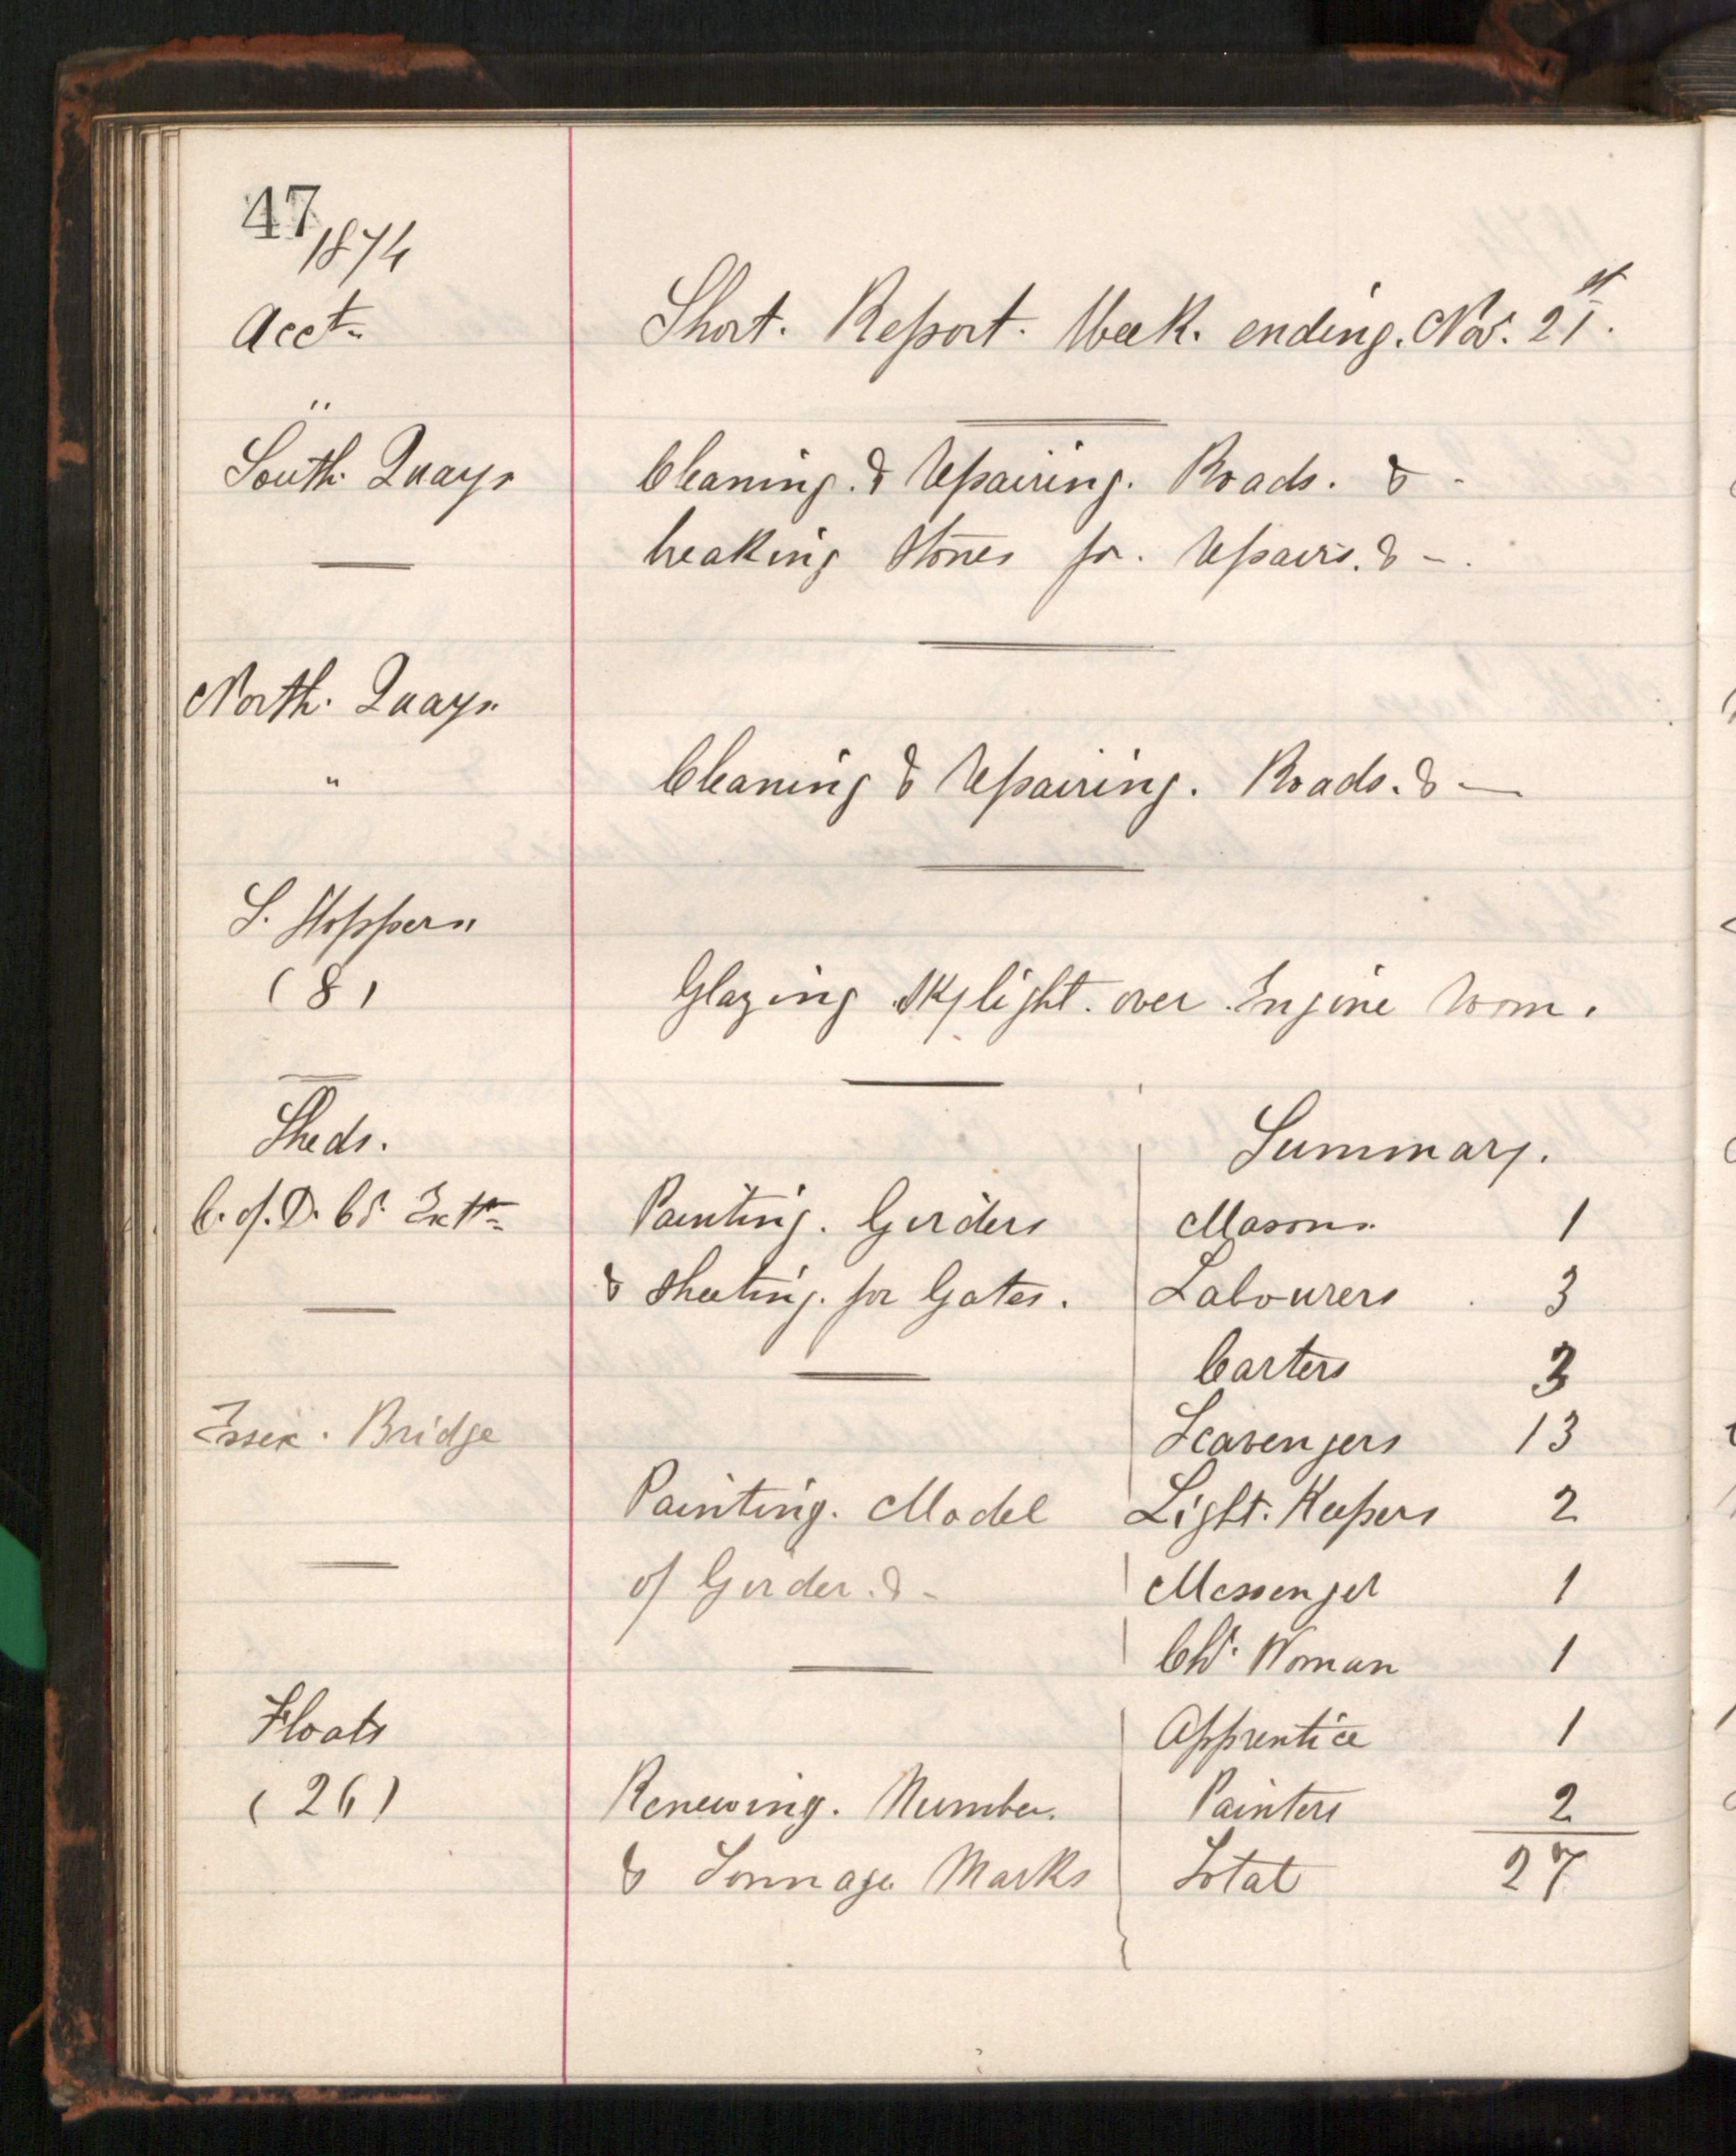 47
1874
Acct.
Short. Report. Week. ending. Nov. 21st.
"
South. Quays
Cleaning. & repairing. Roads. & -
breaking stones for. repairs. & -.
North. Quays.
"
Cleaning & repairing. Roads. & —
S. Hoppers
(8)
Glazing skylight. over Engine room.
Sheds.
C. of. D. Co. Extn.
Painting. Girders
& sheeting. for Gates.
Essex. Bridge
Painting. Model
of Girder. & -
Floats
(26)
Renewing. Number.
& Tonnage Marks
Summary.
Masons. 1
Labourers 3
Carters 3
Scavengers 13
Light. Keepers 2
Messenger 1
Woman 1
Apprentice 1
Painters 2
Total 27